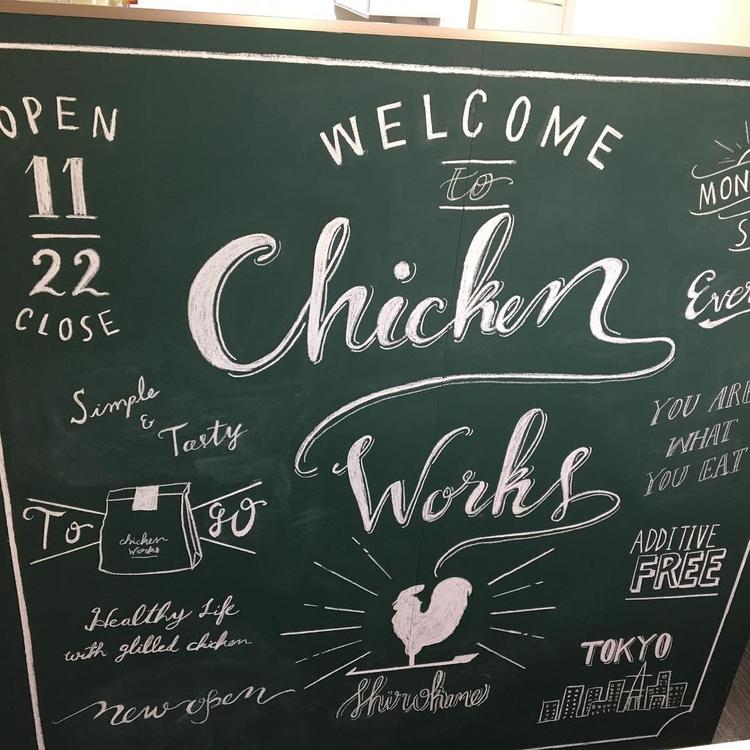 OPEN
11
22
CLOSE
WELCOME
to
Chicken
Works
MON
S
Ever
Simple
&
Tasty
To go
chicken
works
Healthy Life
with glilled chicken
new open
Shirokane
YOU ARE
WHAT
YOU EAT
ADDITIVE
FREE
TOKYO